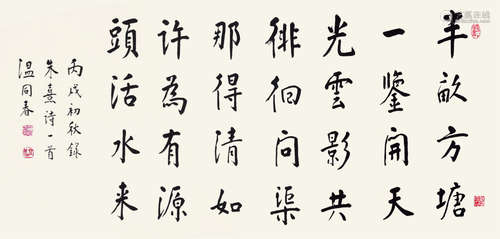 半畝方塘
一鑒開天
光雲影共
徘徊問渠
那得清如
許為有源
頭活水来
丙戌初秋錄
朱熹诗一首
温同春